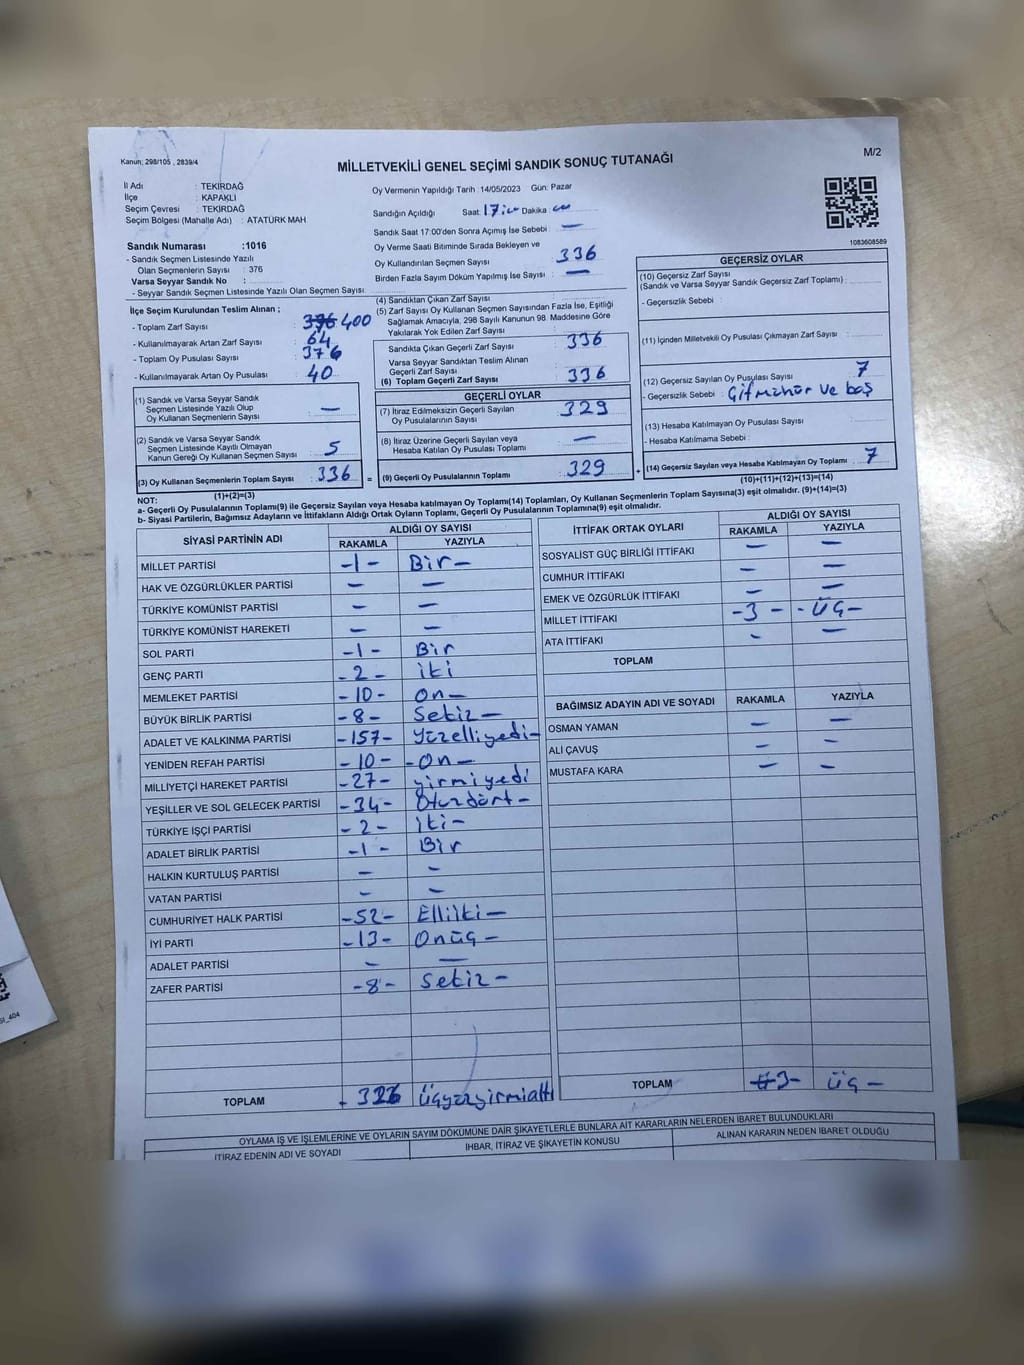 Kanun; 298/105 , 2839/4
MİLLETVEKİLİ GENEL SEÇİMİ SANDIK SONUÇ TUTANAĞI
M/2
İl Adı : TEKİRDAĞ
İlçe : KAPAKLI
Seçim Çevresi : TEKİRDAĞ
Seçim Bölgesi (Mahalle Adı) : ATATÜRK MAH
Sandık Numarası :1016
- Sandık Seçmen Listesinde Yazılı
Olan Seçmenlerin Sayısı : 376
Varsa Seyyar Sandık No :
- Seyyar Sandık Seçmen Listesinde Yazılı Olan Seçmen Sayısı:
Oy Vermenin Yapıldığı Tarih : 14/05/2023 Gün: Pazar
Sandığın Açıldığı Saat 17:00 Dakika 00
Sandık Saat 17:00'den Sonra Açımış İse Sebebi : —
Oy Verme Saati Bitiminde Sırada Bekleyen ve
Oy Kullandırılan Seçmen Sayısı 336
Birden Fazla Sayım Döküm Yapılmış İse Sayısı : —
1083608589
İlçe Seçim Kurulundan Teslim Alınan ;
- Toplam Zarf Sayısı : 400
- Kullanılmayarak Artan Zarf Sayısı : 64
- Toplam Oy Pusulası Sayısı : 376
- Kullanılmayarak Artan Oy Pusulası : 40
(1) Sandık ve Varsa Seyyar Sandık
Seçmen Listesinde Yazılı Olup
Oy Kullanan Seçmenlerin Sayısı : —
(2) Sandık ve Varsa Seyyar Sandık
Seçmen Listesinde Kayıtlı Olmayan
Kanun Gereği Oy Kullanan Seçmen Sayısı : 5
(3) Oy Kullanan Seçmenlerin Toplam Sayısı : 336
(1)+(2)=(3)
(4) Sandıktan Çıkan Zarf Sayısı
(5) Zarf Sayısı Oy Kullanan Seçmen Sayısından Fazla İse, Eşitliği
Sağlamak Amacıyla; 298 Sayılı Kanunun 98. Maddesine Göre
Yakılarak Yok Edilen Zarf Sayısı :
Sandıkta Çıkan Geçerli Zarf Sayısı : 336
Varsa Seyyar Sandıktan Teslim Alınan
Geçerli Zarf Sayısı :
(6) Toplam Geçerli Zarf Sayısı : 336
GEÇERLİ OYLAR
(7) İtiraz Edilmeksizin Geçerli Sayılan
Oy Pusulalarının Sayısı : 329
(8) İtiraz Üzerine Geçerli Sayılan veya
Hesaba Katılan Oy Pusulası Toplamı : —
= (9) Geçerli Oy Pusulalarının Toplamı : 329
GEÇERSİZ OYLAR
(10) Geçersiz Zarf Sayısı
(Sandık ve Varsa Seyyar Sandık Geçersiz Zarf Toplamı) :
- Geçersizlik Sebebi :
(11) İçinden Milletvekili Oy Pusulası Çıkmayan Zarf Sayısı :
(12) Geçersiz Sayılan Oy Pusulası Sayısı : 7
- Geçersizlik Sebebi : Çift mühür ve boş
(13) Hesaba Katılmayan Oy Pusulası Sayısı :
- Hesaba Katılmama Sebebi :
+ (14) Geçersiz Sayılan veya Hesaba Katılmayan Oy Toplamı : 7
(10)+(11)+(12)+(13)=(14)
NOT:
a- Geçerli Oy Pusulalarının Toplamı(9) ile Geçersiz Sayılan veya Hesaba katılmayan Oy Toplamı(14) Toplamları, Oy Kullanan Seçmenlerin Toplam Sayısına(3) eşit olmalıdır. (9)+(14)=(3)
b- Siyasi Partilerin, Bağımsız Adayların ve İttifakların Aldığı Ortak Oyların Toplamı, Geçerli Oy Pusulalarının Toplamına(9) eşit olmalıdır.
SİYASİ PARTİNİN ADI
ALDIĞI OY SAYISI
RAKAMLA YAZIYLA
MİLLET PARTİSİ -1- Bir-
HAK VE ÖZGÜRLÜKLER PARTİSİ — —
TÜRKİYE KOMÜNİST PARTİSİ — —
TÜRKİYE KOMÜNİST HAREKETİ — —
SOL PARTİ -1- Bir
GENÇ PARTİ -2- iki
MEMLEKET PARTİSİ -10- On-
BÜYÜK BİRLİK PARTİSİ -8- Sekiz-
ADALET VE KALKINMA PARTİSİ -157- Yüzelliyedi-
YENİDEN REFAH PARTİSİ -10- -On-
MİLLİYETÇİ HAREKET PARTİSİ -27- yirmiyedi
YEŞİLLER VE SOL GELECEK PARTİSİ -34- Otuzdört-
TÜRKİYE İŞÇİ PARTİSİ -2- iki-
ADALET BİRLİK PARTİSİ -1- Bir
HALKIN KURTULUŞ PARTİSİ — —
VATAN PARTİSİ — —
CUMHURİYET HALK PARTİSİ -52- Elliiki-
İYİ PARTİ -13- Onüç-
ADALET PARTİSİ — —
ZAFER PARTİSİ -8- Sekiz-
TOPLAM - 326 Üçyüzyirmialtı
İTTİFAK ORTAK OYLARI
ALDIĞI OY SAYISI
RAKAMLA YAZIYLA
SOSYALİST GÜÇ BİRLİĞİ İTTİFAKI — —
CUMHUR İTTİFAKI — —
EMEK VE ÖZGÜRLÜK İTTİFAKI — —
MİLLET İTTİFAKI -3- -Üç-
ATA İTTİFAKI — —
TOPLAM
BAĞIMSIZ ADAYIN ADI VE SOYADI RAKAMLA YAZIYLA
OSMAN YAMAN — —
ALİ ÇAVUŞ — —
MUSTAFA KARA — —
TOPLAM 3- Üç-
OYLAMA İŞ VE İŞLEMLERİNE VE OYLARIN SAYIM DÖKÜMÜNE DAİR ŞİKAYETLERLE BUNLARA AİT KARARLARIN NELERDEN İBARET BULUNDUKLARI
İTİRAZ EDENİN ADI VE SOYADI
İHBAR, İTİRAZ VE ŞİKAYETİN KONUSU
ALINAN KARARIN NEDEN İBARET OLDUĞU